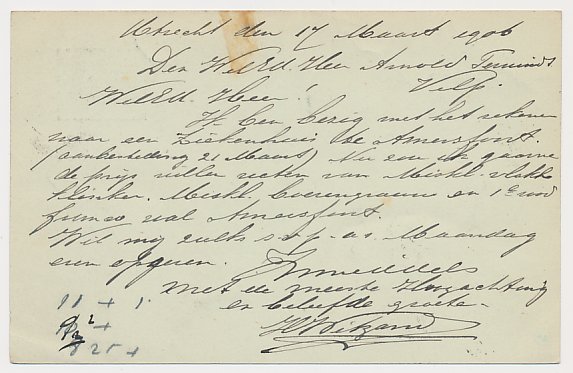 Utrecht den 17 Maart 1906
Den WelEd. Heer Arnold
Velp.
WelEd. Heer!
Ik ben bezig met het rekenen
naar een Ziekenhuis te Amersfoort.
(aanbesteding 21 Maart) Nu zou ik gaarne
de prijs willen weten van Miskl. vlakke
klinker. Miskl. Boerengrauw en 1e
franco wal Amersfoort.
Wil mij zulks s.v.p. as Maandag
even opgeven. Inmiddels
met de meeste Hoogachting
en beleefde groete
11 + 1
825 +